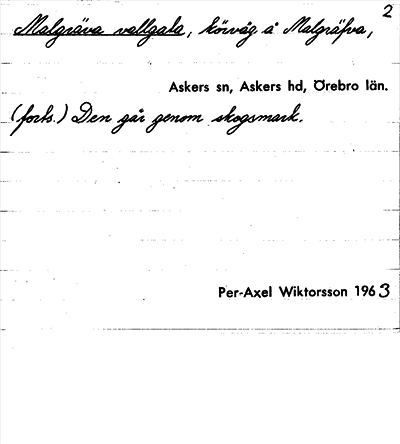 2
Malgräva vallgata, körväg å Malgräfva,
Askers sn, Askers hd, Örebro län.
(forts.) Den går genom skogsmark.
Per-Axel Wiktorsson 1963